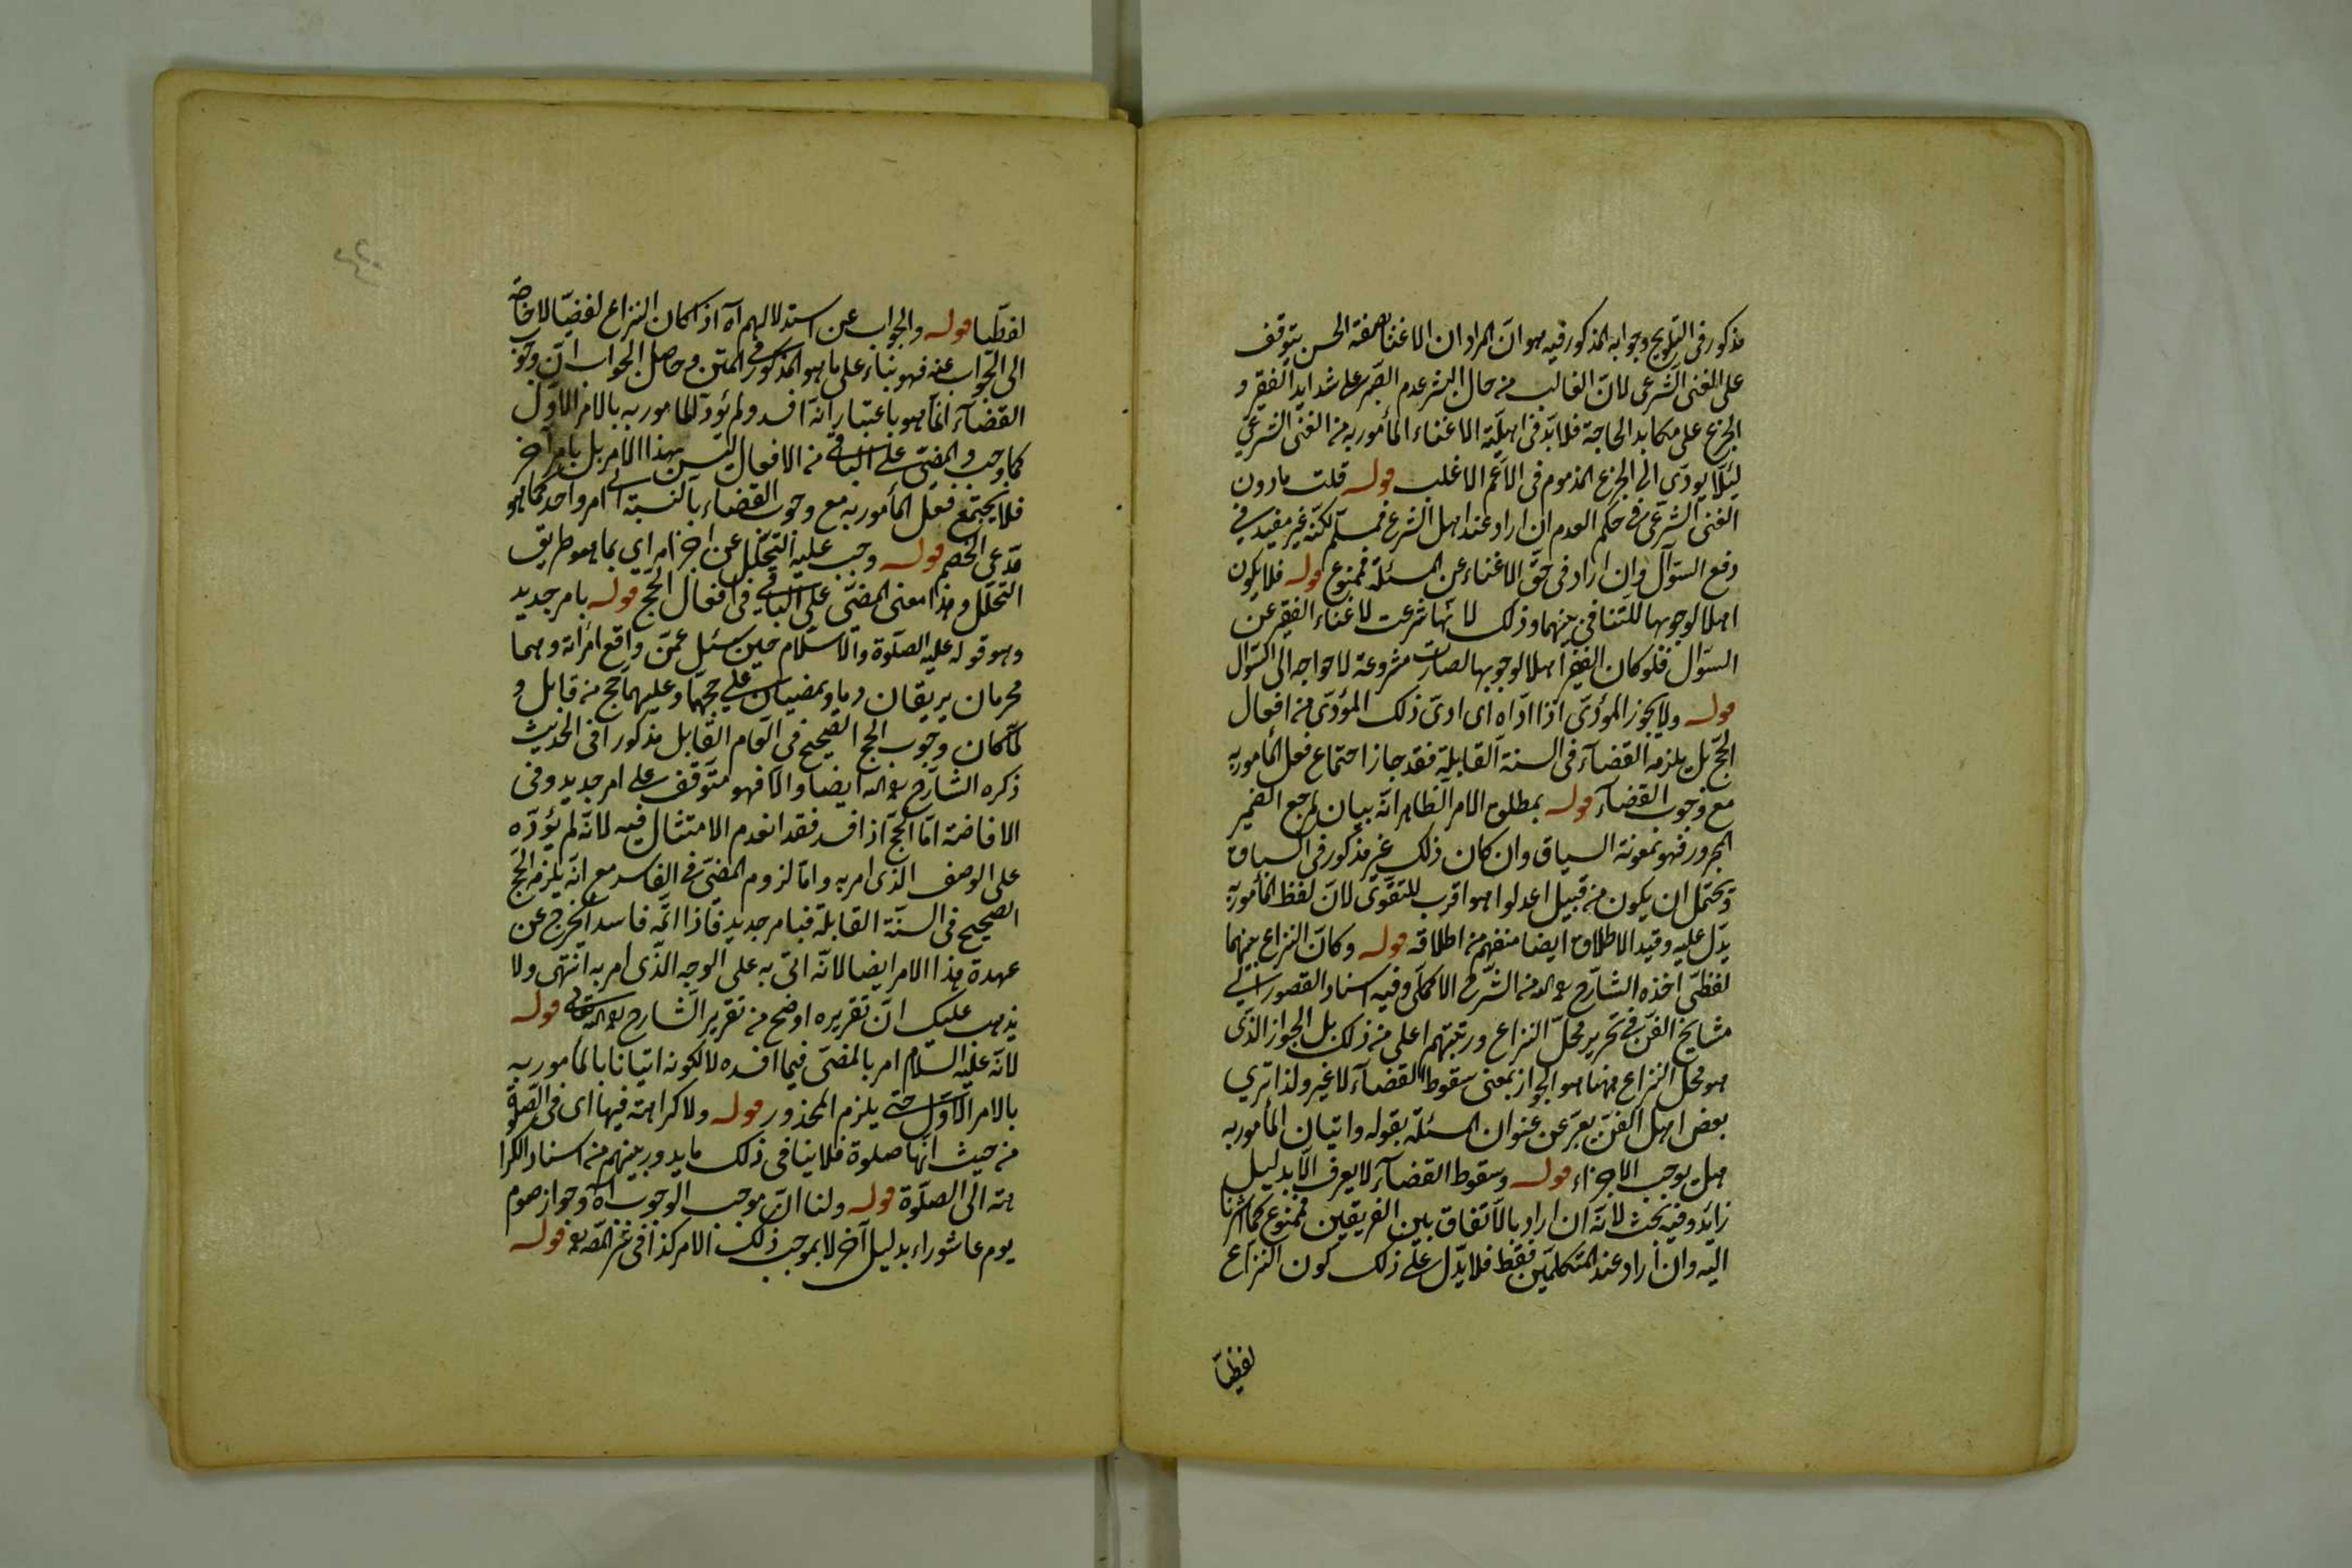 مذكور فى التلويح وجوابه المذكور فيه هو ان المراد ان الاغنا بصفة الحسن يتوقف
على الغنى الشرعى لان الغالب من حال البشر عدم الصبر على شدايد الفقر و
الجزع على مكابد الحاجة فلا بد فى اهلية الاغناء المأمور به من الغنى الشرعي
لئلا يودى الى الجزع المذموم فى الاعم الاغلب قوله قلت مادون
الغنى الشرعى فى حكم العدم ان اراد عند اهل الشرع فمسلم لكنه غير مفيد فى
دفع السؤال وان اراد فى حق الاغناء عن المسئلة فممنوع قوله فلا يكون
اهلا لوجوبها للتنافى بينهما وذلك لانها شرعت لاغناء الفقير عن
السؤال فلو كان الفقير اهلا لوجوبها لصارت مشروعة لاحواجه الى السؤال
قوله ولا يجوز المؤدى اذا اداه اى ادى ذلك المؤدى من افعال
الحج بل يلزمه القضاء فى السنة القابلة فقد جاز اجتماع فعل المأمور به
مع وجوب القضاء قوله بمطلق الامر الظاهر انه بيان لمرجع الضمير
المجرور فهو بمعونة السياق وان كان ذلك غير مذكور فى السباق
ويحتمل ان يكون من قبيل اعدلوا هو اقرب للتقوى لان لفظ المأمور به
يدل عليه وقيد الاطلاق ايضا منفهم من اطلاقه قوله وكان النزاع بينهما
لفظى اخذه الشارح رحمه الله من الشرح الاكملى وفيه اسناد القصور الى
مشايخ الفن فى تحرير محل النزاع ورتبتهم اعلى من ذلك بل الجواز الذى
هو محل النزاع ههنا هو الجواز بمعنى سقوط القضاء لا غير ولذا ترى
بعض اهل الفن يعبر عن عنوان المسئلة بقوله واتيان المأمور به
هل يوجب الاجزاء قوله وسقوط القضاء لا يعرف الا بدليل
زايد وفيه بحث لانه ان اراد بالاتفاق بين الفريقين فممنوع كما اشرنا
اليه وان اراد عند المتكلمين فقط فلا يدل على ذلك كون النزاع
لفظيا
لفظيا قوله والجواب عن استدلالهم اه اذا كان النزاع لفظيا لا حاجة
الى الجواب عنه فهو بناء على ما هو المذكور فى المتن وحاصل الجواب ان وجوب
القضاء انما هو باعتبار انه افسد ولم يؤد المأمور به بالامر الاول
كما وجب والمضى على الباقى من الافعال ليس بهذا الامر بل بامر آخر
فلا يجتمع فعل المأمور به مع وجوب القضاء بالنسبة الى امر واحد كما هو
مدعى الخصم قوله وجب عليه التحلل عن احرامه اى بما هو طريق
التحلل وهذا معنى المضى على الباقى فى افعال الحج قوله بامر جديد
وهو قوله عليه الصلوة والسلام حين سئل عمن واقع امرأته وهما
محرمان يريقان دما ويمضيان على حجهما وعليهما حج من قابل و
لما كان وجوب الحج الصحيح فى العام القابل مذكورا فى الحديث
ذكره الشارح رحمه الله ايضا والا فهو متوقف على امر جديد وفى
الافاضة اما الحج اذا فسد فقد انعدم الامتثال فيه لانه لم يؤده
على الوصف الذى امر به واما لزوم المضى فى الفاسد مع انه يلزمه الحج
الصحيح فى السنة القابلة فبامر جديد فاذا اتمه فاسدا خرج عن
عهدة هذا الامر ايضا لانه اتى به على الوجه الذى امر به انتهى ولا
يذهب عليك ان تقريره اوضح من تقرير الشارح رحمه الله تعالى قوله
لانه عليه السلام امر بالمضى فيما افسده لا لكونه اتيانا بالمأمور به
بالامر الاول حتى يلزم المحذور قوله ولا كراهة فيها اى فى الصلوة
من حيث انها صلوة فلا ينافى ذلك ما يدور بينهم من اسناد الكرا
هة الى الصلوة قوله ولنا ان موجب الوجوب اه وجواز صوم
يوم عاشوراء بدليل آخر لا بموجب ذلك الامر كذا فى قوله